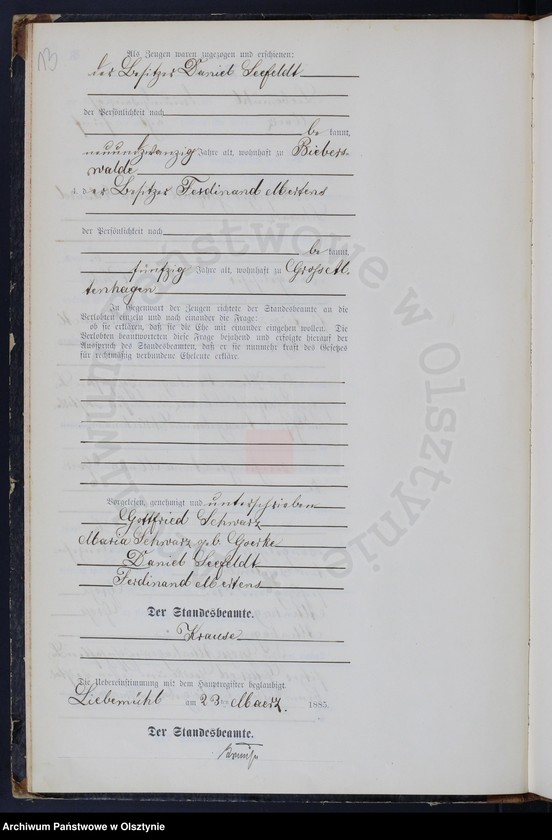 13
Als Zeugen waren zugezogen und erschienen:
der Besitzer Daniel Seefeldt
der Persönlichkeit nach
be kannt,
neunundzwanzig Jahre alt, wohnhaft zu Biebers-
walde
2. der Besitzer Ferdinand Mertens
der Persönlichkeit nach
be kannt,
fünfzig Jahre alt, wohnhaft zu Gross Al-
tenhagen
In Gegenwart der Zeugen richtete der Standesbeamte an die
Verlobten einzeln und nach einander die Frage:
ob sie erklären, daß sie die Ehe mit einander eingehen wollen. Die
Verlobten beantworteten diese Frage bejahend und erfolgte hierauf der
Ausspruch des Standesbeamten, daß er sie nunmehr kraft des Gesetzes
für rechtmäßig verbundene Eheleute erkläre.
Vorgelesen, genehmigt und unterschrieben
Gottfried Schwarz
Maria Schwarz geb Goerke
Daniel Seefeldt
Ferdinand Mertens
Der Standesbeamte.
Krause
Die Uebereinstimmung mit dem Hauptregister beglaubigt.
Liebemühl am 23ten Maerz. 1885.
Der Standesbeamte.
Krause
Archiwum Państwowe w Olsztynie
Archiwum Państwowe w Olsztynie